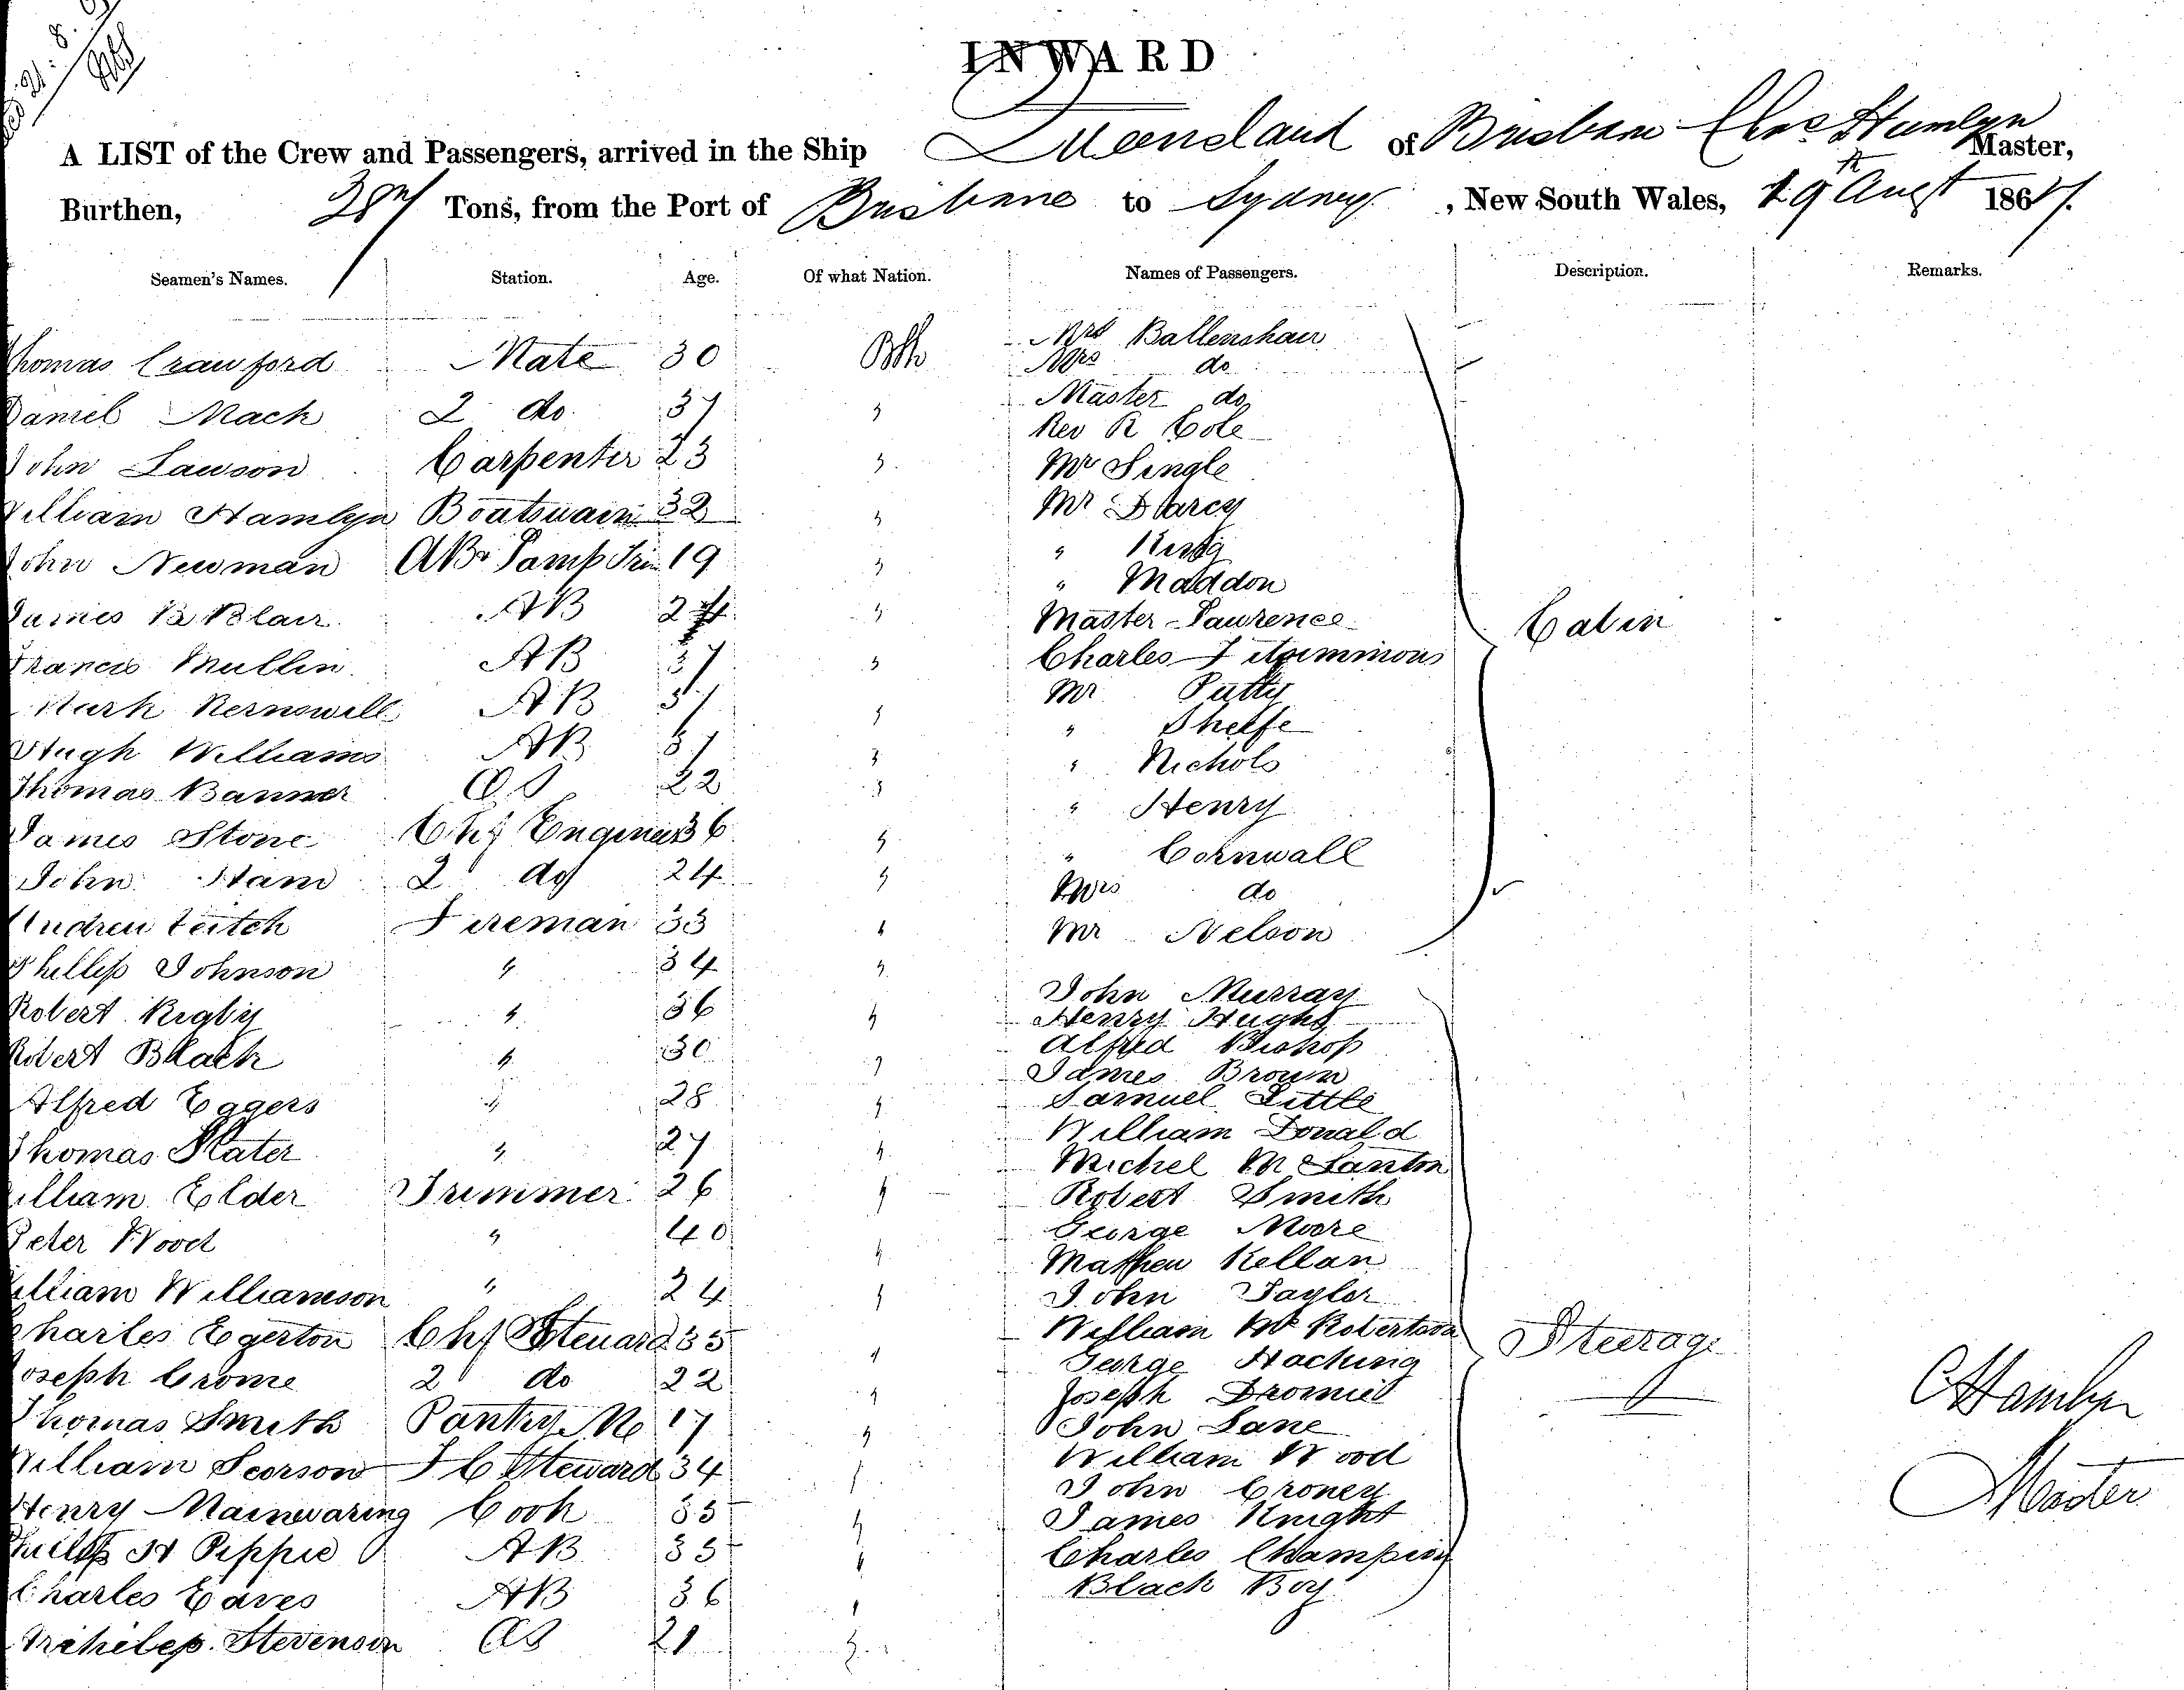 INWARD
A LIST of the Crew and Passengers, arrived in the Ship Queensland of Brisbane Chas Hamlyn Master,
Burthen, Tons, from the Port of Brisbane to Sydney, New South Wales, 19th Augt 186
Seamen's Names. Station. Age. Of what Nation. Names of Passengers. Description. Remarks.
Thomas Crawford Mate 30 Bth
Daniel Mack 2 do 37 "
John Lawson Carpenter 23 "
William Hamlyn Boatswain 32 "
John Newman AB & Lamp Trim 19 "
James B Blair AB 24 "
Francis Mullin AB 37 "
Mark AB "
Hugh Williams AB "
Thomas Banner OS 22 "
James Stone Chf Engineer 36 "
John Ham 2 do 24 "
Andrew Leitch Fireman 33 "
Phillip Johnson " 34 "
Robert Rigby " 36 "
Robert Black " 30 "
Alfred Eggers " 28 "
Thomas Slater " 27 "
William Elder Trimmer 26 "
Peter Wood " 40 "
William Williamson " 24 "
Charles Egerton Chf Steward 35 "
Joseph Crome 2 do 22 "
Thomas Smith Pantry 17 "
William Scorson F C Steward 34 "
Henry Mainwaring Cook 35 "
Philip H Pippie AB 35 "
Charles Eaves AB 36 "
Stevenson OS 21 "
Mr Ballenshaw
Mrs do
Master do
Rev R Cole
Mr Single
Mr Darcy
"
" Maddon
Master Laurence
Charles Fitzsimmons
Mr Putty
" Shelfe
" Nichols
" Henry
" Cornwall
Mrs do
Mr Nelson
Cabin
John Murray
Henry Hughs
Alfred Bishop
James Brown
Samuel Little
William Donald
Michel
Robert Smith
George Moore
Mathew Kellan
John Taylor
William Robertson
George Hocking
Joseph Dromie
John Lane
William Wood
John Croney
James Knight
Charles Champion
Black Boy
Steerage
C Hamlyn
Master